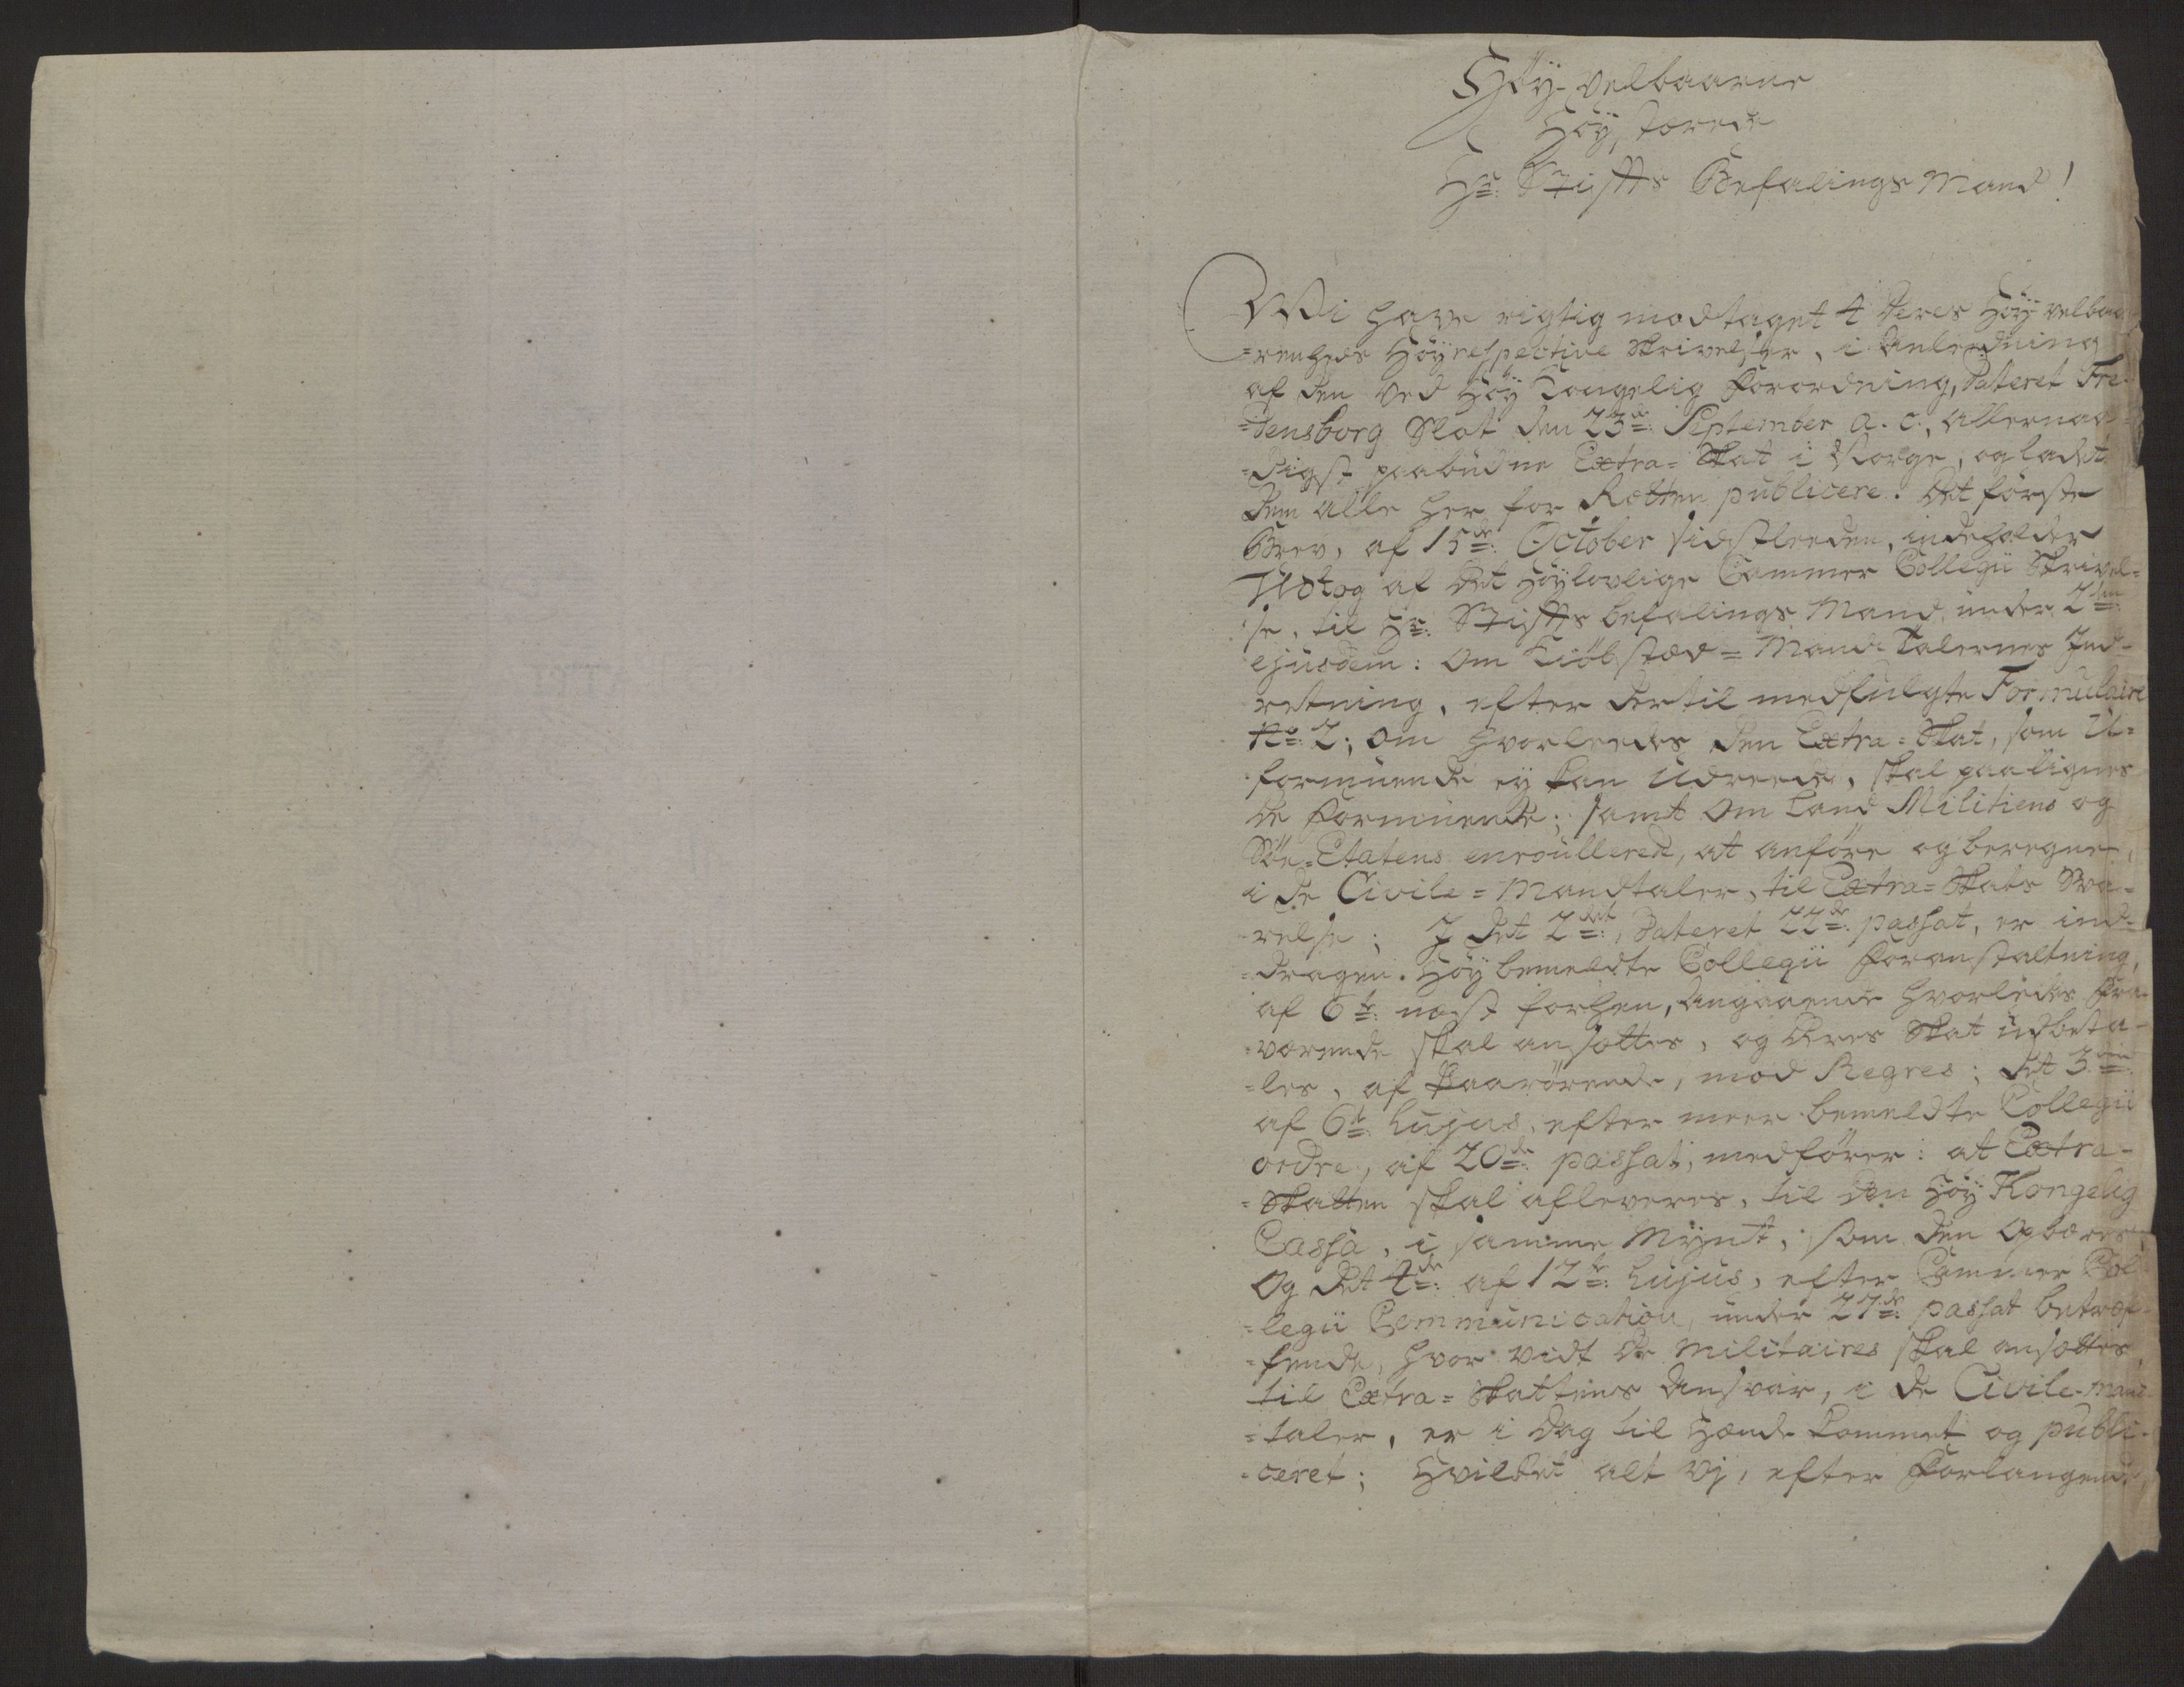 Høÿ-velbaarne
Høÿ, ærede
Hr: Stiffts Befalings Mand!
Wi have rigtig modtaget 4 Deres Høÿ velbaa-
=renheds Høÿrespective Skrivelser, i Anledning
af den ved Høÿ Kongelig Forordning, Dateret Fre-
=densborg Slot den 23de September a. c., allernaa-
=digst paabudne Extra=Skat i Norge, og ladet
dem alle her for Retten publicere. Det første
Brev, af 15de October sidstleeden, indeholder
Udtog af Det Høÿlovlige Cammer Collegii Skrivel=
se, til Hr: Stiffts befalings Mand, under 2den
ejusdem: Om Kiøbstæd=Mandtalernes Ind-
retning, efter dertil medfulgte Formulaire
No: 2; Om hvorleedes den Extra=Skat, som U=
formuende eÿ kan Udreede, skal paalignes
de Formuende; samt Om Land Militiens og
Søe=Etatens enroullered, at anføre og beregne,
i de Civile=Mandtaler, til Extra=Skats Sva-
relse; I det 2det, Dateret 22de passat, er ind=
=dragen Høÿbemeldte Collegii Foranstaltning,
af 6te næst forhen, Angaaende hvorledes Fra-
=værende skal ansættes, og deres Skat udbeta-
=les, af Paarørende, mod Regres; det 3die
af 6te hujus, efter meer bemeldte Collegii
ordre, af 20de passat, medfører: at Extra-
=Skatten skal afleveres, til den Høÿ Kongelig
Cassa, i samme Mÿnt, som den Opbæres,
Og det 4de af 12te hujus, efter Cammer Col-
=legii Communication, under 27de passat betræf-
=fende, hvor vidt de Militaires skal ansættes
til Extra=Skattens Ansvar, i de Civile-Mand-
=taler, er i Dag til Hænde kommet og publi-
=ceret; Hvilket alt Vj, efter Forlangende,